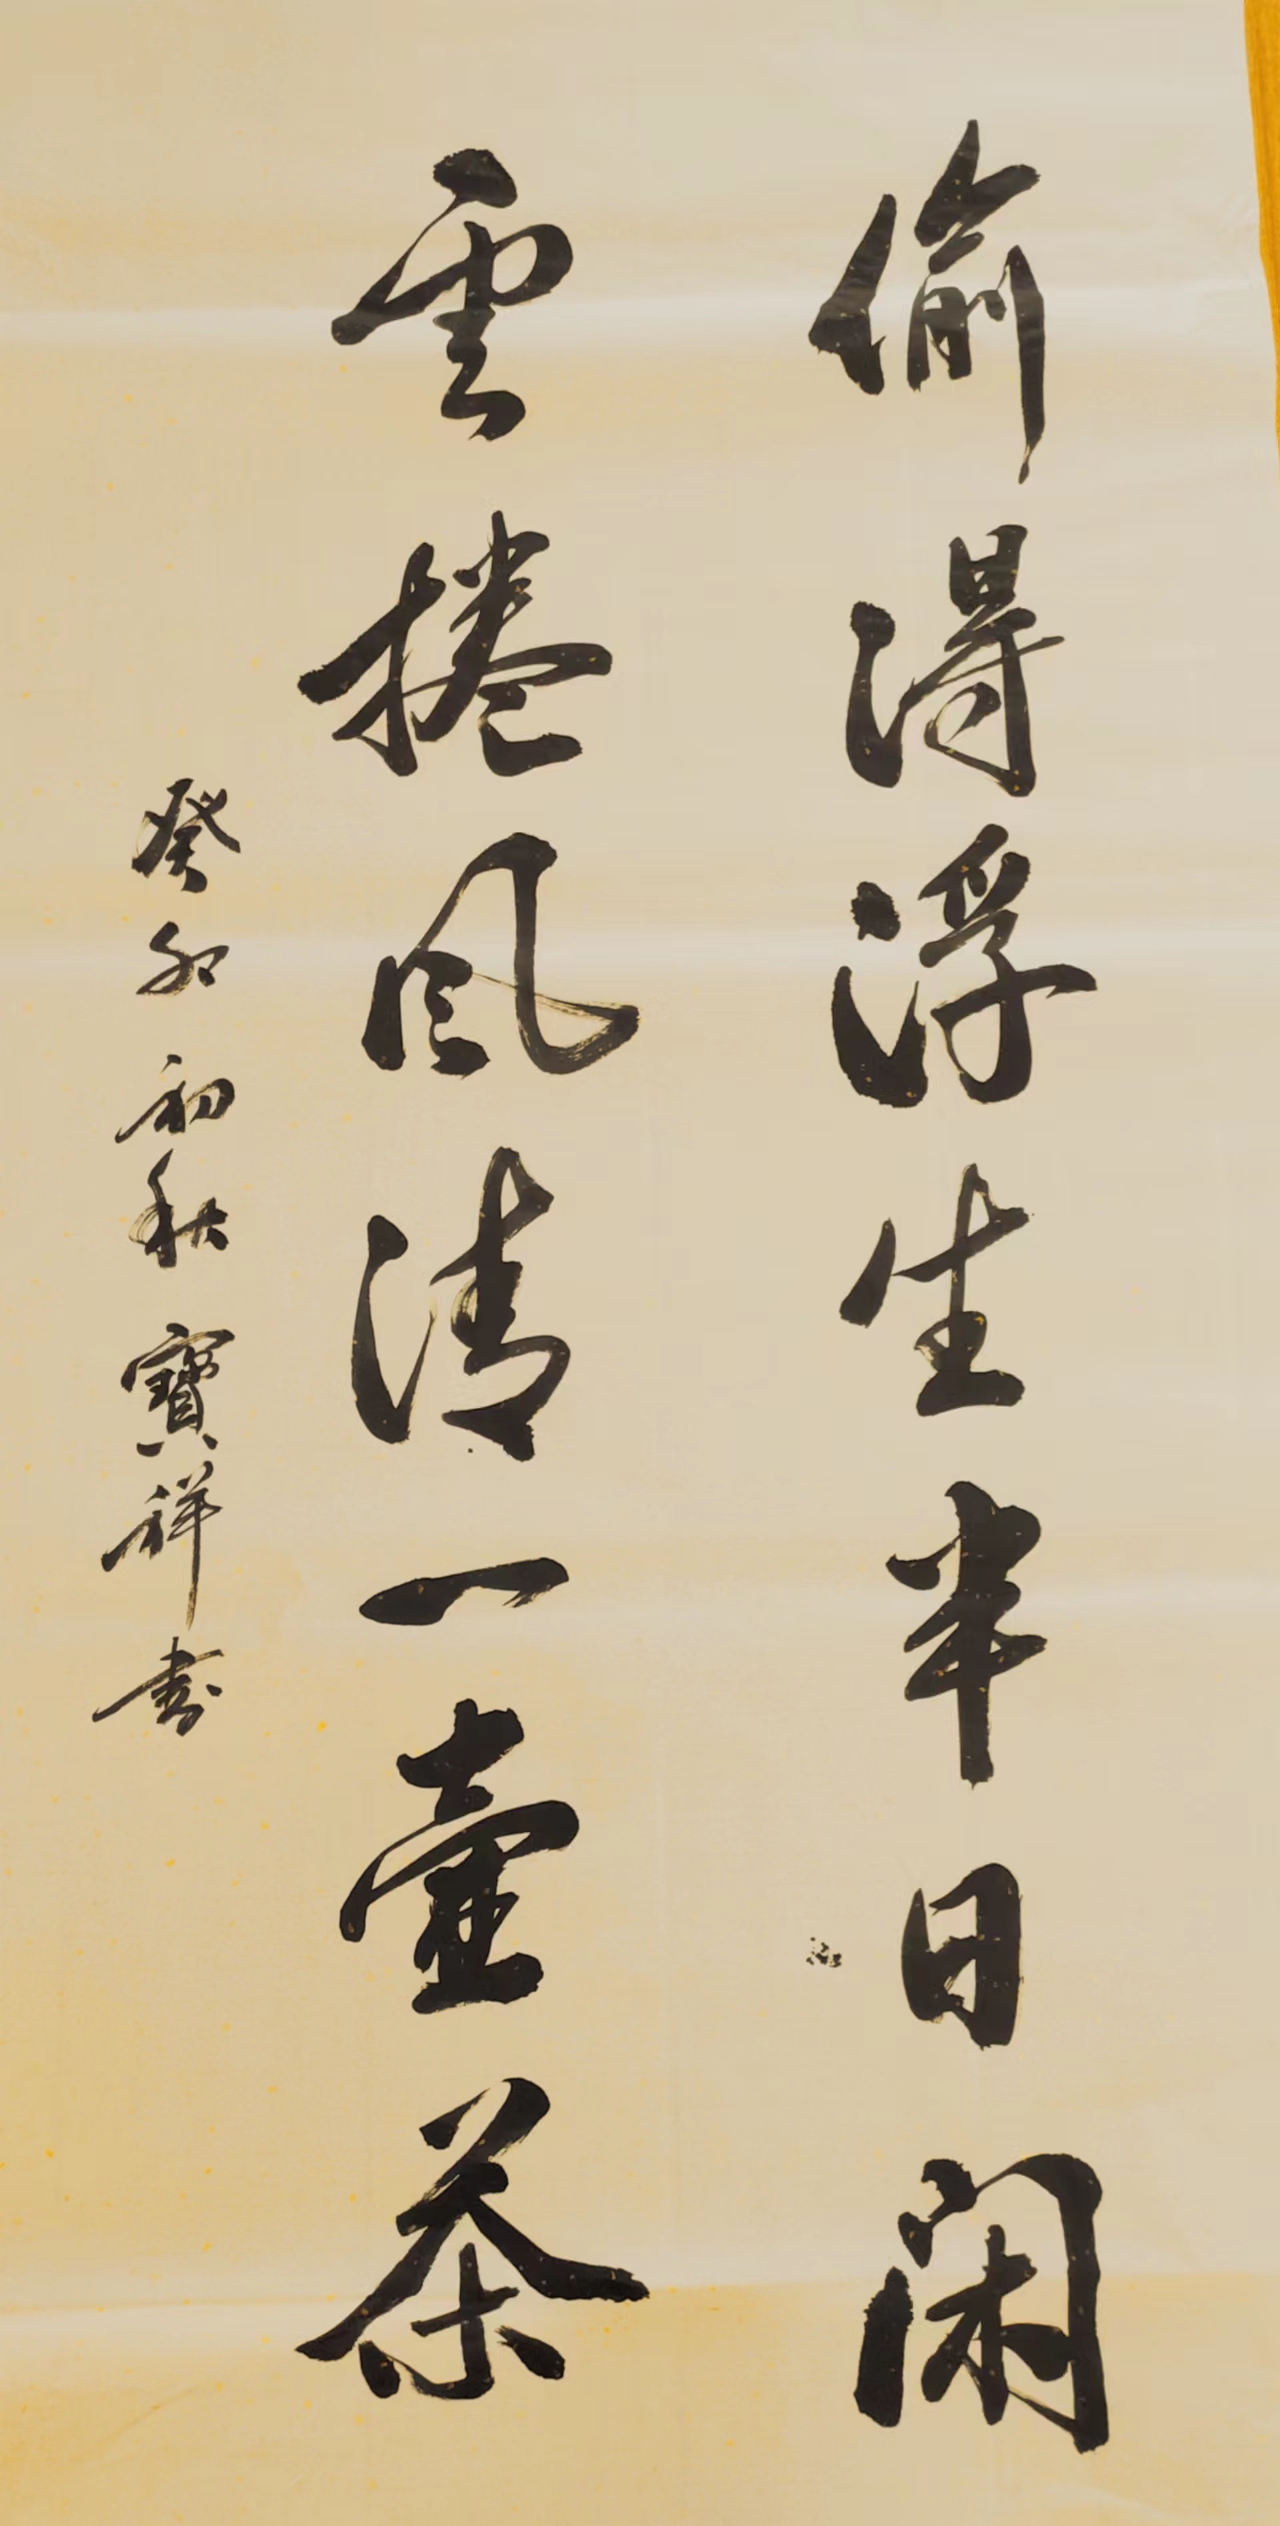 偷得浮生半日闲
雲捲风清一壶茶
癸卯初秋寶祥书